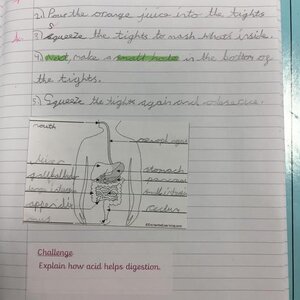 2) Pour the orange juice into the tights
S
3) squeeze the tights to mash whats inside.
4) next, make a small hole in the bottom of
the tights.
5) Squeeze the tights again and observe.
mouth
oesophagus
liver
stomach
gallbladder
pancreas
large intestine
small intestine
appendix
rectum
anus
Challenge
Explain how acid helps digestion.